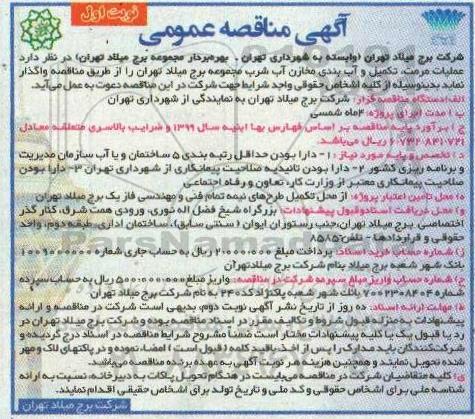 نوبت اول
آگهی مناقصه عمومی
شرکت برج میلاد تهران (وابسته به شهرداری تهران . بهره‌بردار مجموعه برج میلاد تهران) در نظر دارد
عملیات مرمت، تکمیل و آب بندی مخازن آب شرب مجموعه برج میلاد تهران را از طریق مناقصه واگذار
نماید بدینوسیله از کلیه اشخاص حقوقی واجد شرایط جهت شرکت در این مناقصه دعوت به عمل می‌آید.
الف) دستگاه مناقصه گزار: شرکت برج میلاد تهران به نمایندگی از شهرداری تهران
ب) مدت اجرای پروژه: ۴ماه شمسی
ج) برآورد پایه مناقصه بر اساس فهارس بها ابنیه سال ۱۳۹۹ و ضرایب بالاسری متعلقه معادل
ریال می‌باشد.
د) تخصص و پایه مورد نیاز: ۱- دارا بودن حداقل رتبه بندی ۵ ساختمان و یا آب سازمان مدیریت
و برنامه ریزی کشور ۲- دارا بودن تائیدیه صلاحیت پیمانکاری از شهرداری تهران ۳- دارا بودن
صلاحیت پیمانکاری معتبر از وزارت کار، تعاون و رفاه اجتماعی
ه) محل تامین اعتبار پروژه: از محل تکمیل طرح‌های نیمه تمام فنی و مهندسی فاز یک برج میلاد تهران
و) محل دریافت اسناد و قبول پیشنهادات: بزرگراه شیخ فضل اله نوری، ورودی همت شرق، کنار گذر
اختصاصی برج میلاد تهران، جنب رستوران ایوان (سنتی سابق)، ساختمان اداری، طبقه دوم، واحد
حقوقی و قراردادها - تلفن: ۸۵۸۵
ز) شماره حساب خرید اسناد: پرداخت مبلغ ۲،۰۰۰،۰۰۰ ریال به حساب جاری شماره
بانک شهر شعبه برج میلاد بنام شرکت برج میلاد تهران
ح) شماره حساب واریز مبلغ سپرده شرکت در مناقصه: واریز مبلغ ۵۰۰،۰۰۰،۰۰۰ ریال به حساب سپرده
شماره ۷۰۰۲۳۰۸۴۰۴ بانک شهر شعبه پاکنژاد کد ۲۴۰ به نام شرکت برج میلاد تهران
ط) مهلت ارائه اسناد: ده روز از تاریخ نشر آگهی نوبت دوم، بدیهی است شرکت در مناقصه و ارائه
پیشنهادات به منزله قبول شروط و تکالیف مقرر در اسناد مناقصه بوده و شرکت برج میلاد تهران در
رد یا قبول یک یا کلیه پیشنهادات مختار است ضمناً مشروح شرایط مناقصه در اسناد درج گردیده و
شرکت‌کنندگان باید مدارک را پس از اخذ با قید کلمه (قبول است) امضا نموده و در پاکتهای لاک و مهر
شده تحویل نمایند و همچنین هزینه هر نوبت آگهی به عهده برنده مناقصه می‌باشد.
ی) کلیه متقاضیان شرکت در مناقصه می‌بایست در هنگام تحویل پاکات به دبیرخانه، نسبت به ارائه
شناسه ملی برای اشخاص حقوقی و کد ملی و تاریخ تولد برای اشخاص حقیقی اقدام نمایند.
شرکت برج میلاد تهران